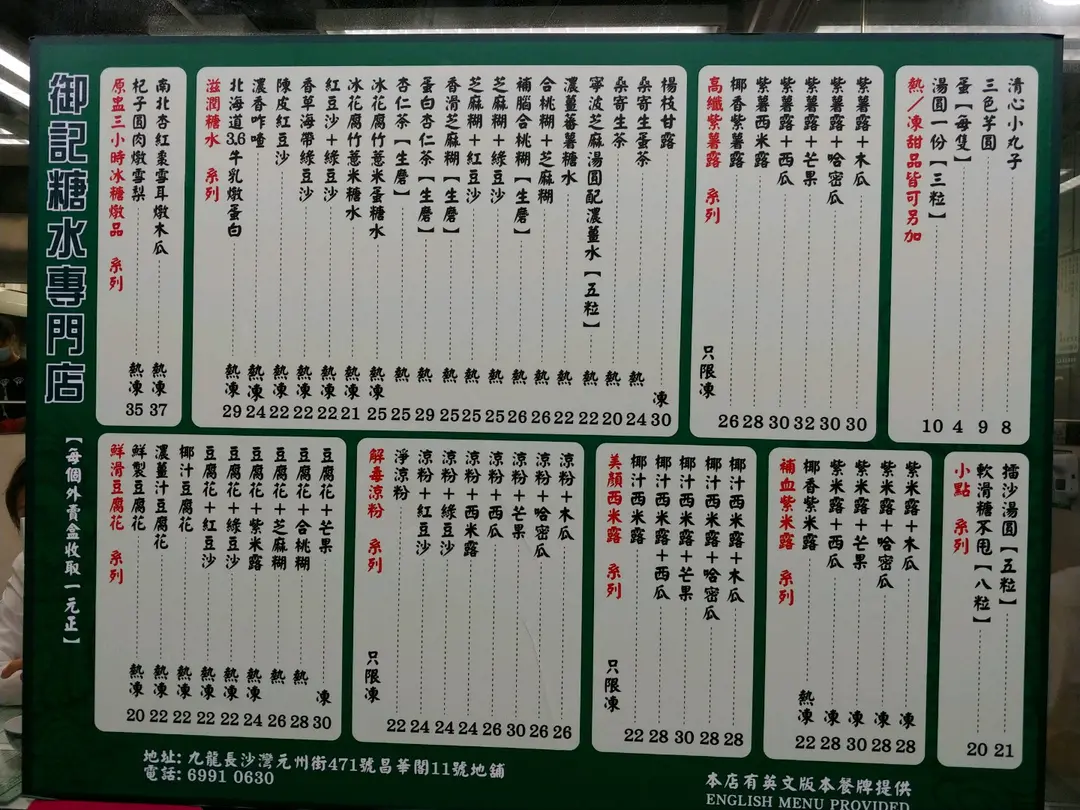 御記糖水專門店
【每個外賣盒收取一元正】
原盅三小時冰糖燉品 系列
杞子圓肉燉雪梨 熱凍 35
南北杏紅棗雪耳燉木瓜 熱凍 37
滋潤糖水 系列
北海道3.6牛乳燉蛋白 熱凍 29
濃香咋喳 熱凍 24
陳皮紅豆沙 熱凍 22
香草海帶綠豆沙 熱凍 22
紅豆沙+綠豆沙 熱凍 22
冰花腐竹薏米糖水 熱凍 21
冰花腐竹薏米蛋糖水 熱凍 25
杏仁茶【生磨】 熱 25
蛋白杏仁茶【生磨】 熱 29
香滑芝麻糊【生磨】 熱 25
芝麻糊+紅豆沙 熱 25
芝麻糊+綠豆沙 熱 25
補腦合桃糊【生磨】 熱 26
合桃糊+芝麻糊 熱 26
濃薑蕃薯糖水 熱 22
寧波芝麻湯圓配濃薑水【五粒】 熱 22
桑寄生茶 熱 20
桑寄生蛋茶 熱 24
楊枝甘露 凍 30
高纖紫薯露 系列 只限凍
椰香紫薯露 26
紫薯西米露 28
紫薯露+西瓜 30
紫薯露+芒果 32
紫薯露+哈密瓜 30
紫薯露+木瓜 30
熱/凍甜品皆可另加
湯圓一份【三粒】 10
蛋【每隻】 4
三色芋圓 9
清心小丸子 8
鮮滑豆腐花 系列
鮮製豆腐花 熱凍 20
濃薑汁豆腐花 熱凍 22
椰汁豆腐花 熱凍 22
豆腐花+紅豆沙 熱凍 22
豆腐花+綠豆沙 熱凍 22
豆腐花+紫米露 熱凍 24
豆腐花+芝麻糊 熱 26
豆腐花+合桃糊 熱 28
豆腐花+芒果 凍 30
解毒涼粉 系列 只限凍
淨涼粉 22
涼粉+紅豆沙 24
涼粉+綠豆沙 24
涼粉+西米露 24
涼粉+西瓜 26
涼粉+芒果 30
涼粉+哈密瓜 26
涼粉+木瓜 26
美顏西米露 系列 只限凍
椰汁西米露 22
椰汁西米露+西瓜 28
椰汁西米露+芒果 30
椰汁西米露+哈密瓜 28
椰汁西米露+木瓜 28
補血紫米露 系列
椰香紫米露 熱凍 22
紫米露+西瓜 凍 28
紫米露+芒果 凍 30
紫米露+哈密瓜 凍 28
紫米露+木瓜 凍 28
小點 系列
軟滑糖不甩【八粒】 20
擂沙湯圓【五粒】 21
地址: 九龍長沙灣元州街471號昌華閣11號地舖
電話: 6991 0630
本店有英文版本餐牌提供
ENGLISH MENU PROVIDED